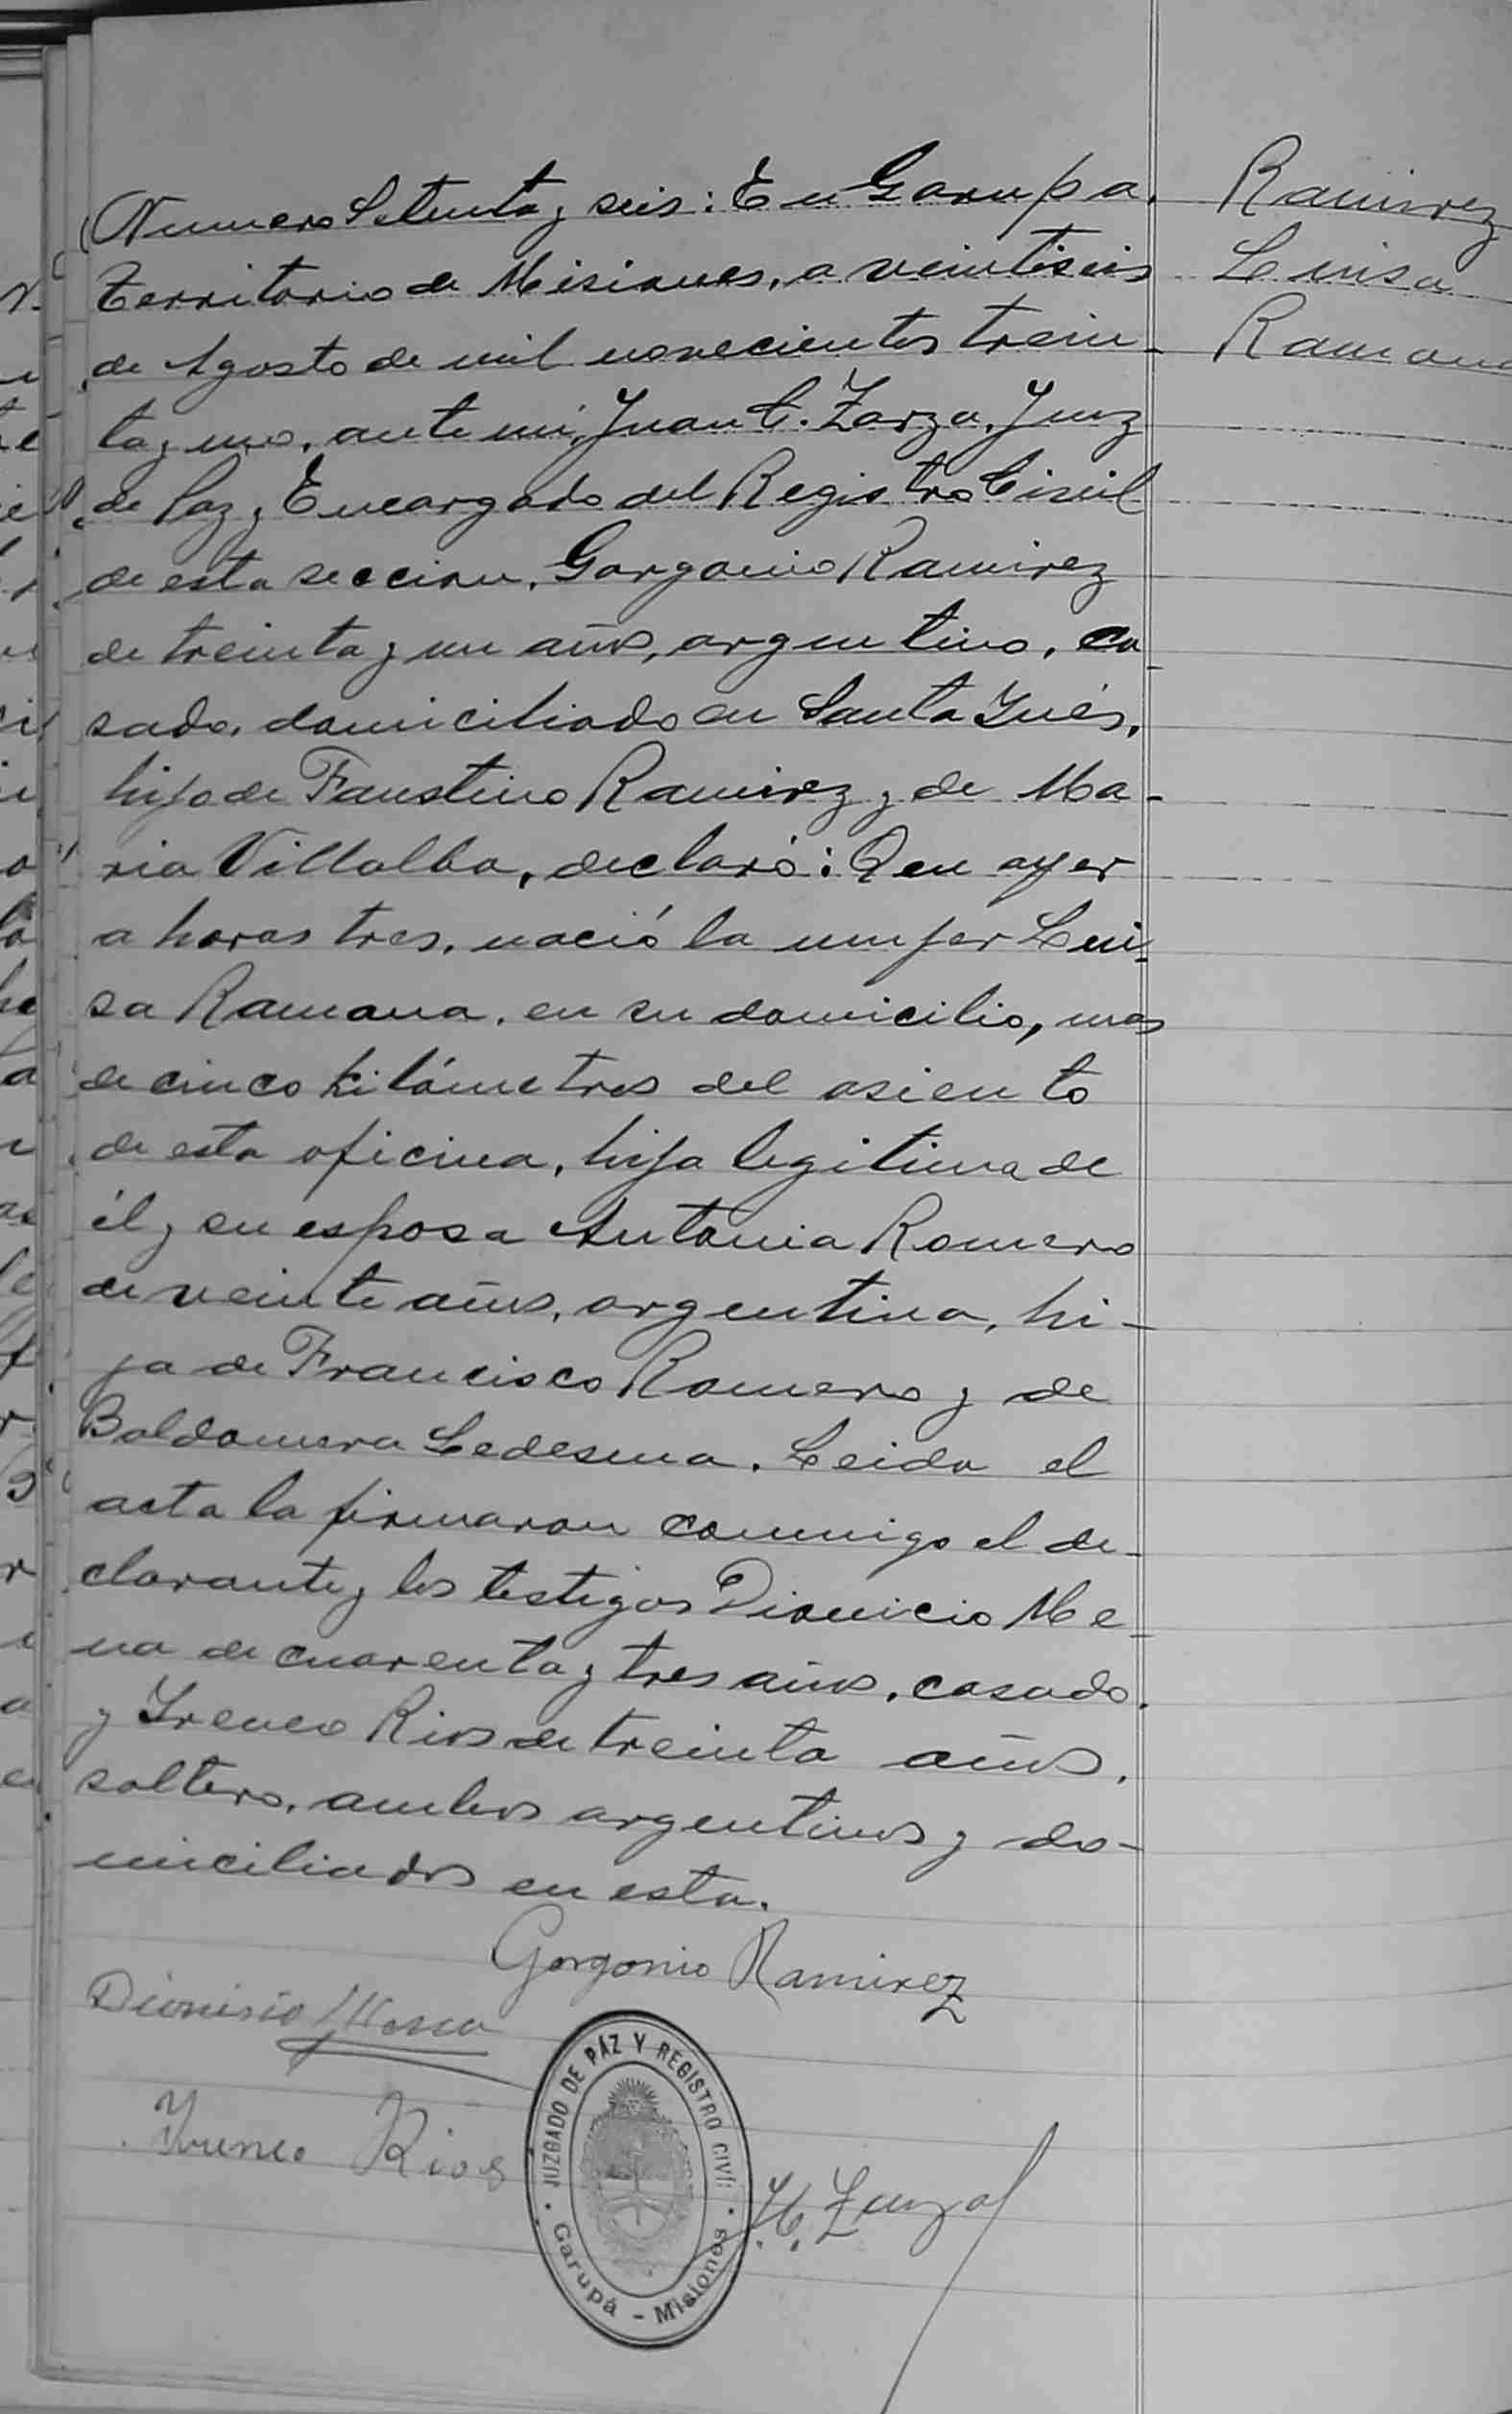 Numero Setenta y seis: En Garupa,
Territorio de Misiones, a veintiseis
de Agosto de mil novecientos trein-
ta y uno, ante mi, Juan C. Zarza, Juez
de Paz y Encargado del Registro Civil
de esta seccion, Gorgonio Ramirez
de treinta y un años, argentino, ca-
sado, domiciliado en Santa Inés,
hijo de Faustino Ramirez y de Ma-
ria Villalba, declaró: Que ayer
a horas tres, nació la mujer Lui-
sa Ramona, en su domicilio, mas
de cinco kilómetros del asiento
de esta oficina, hija legitima de
él y su esposa Antonia Romero
de veinte años, argentina, hi-
ja de Francisco Romero y de
Baldomera Ledesma. Leida el
acta la firmaron conmigo el de-
clarante y los testigos Dionicio Me-
na de cuarenta y tres años, casado,
y Ireneo Rios de treinta años,
soltero, ambos argentinos y do-
miciliados en esta.
Ramirez
Luisa
Ramona
Gorgonio Ramirez
Dionisio Mena
Ireneo Rios
JUZGADO DE PAZ Y REGISTRO CIVIL
Garupá - Misiones
J. C. Zarza